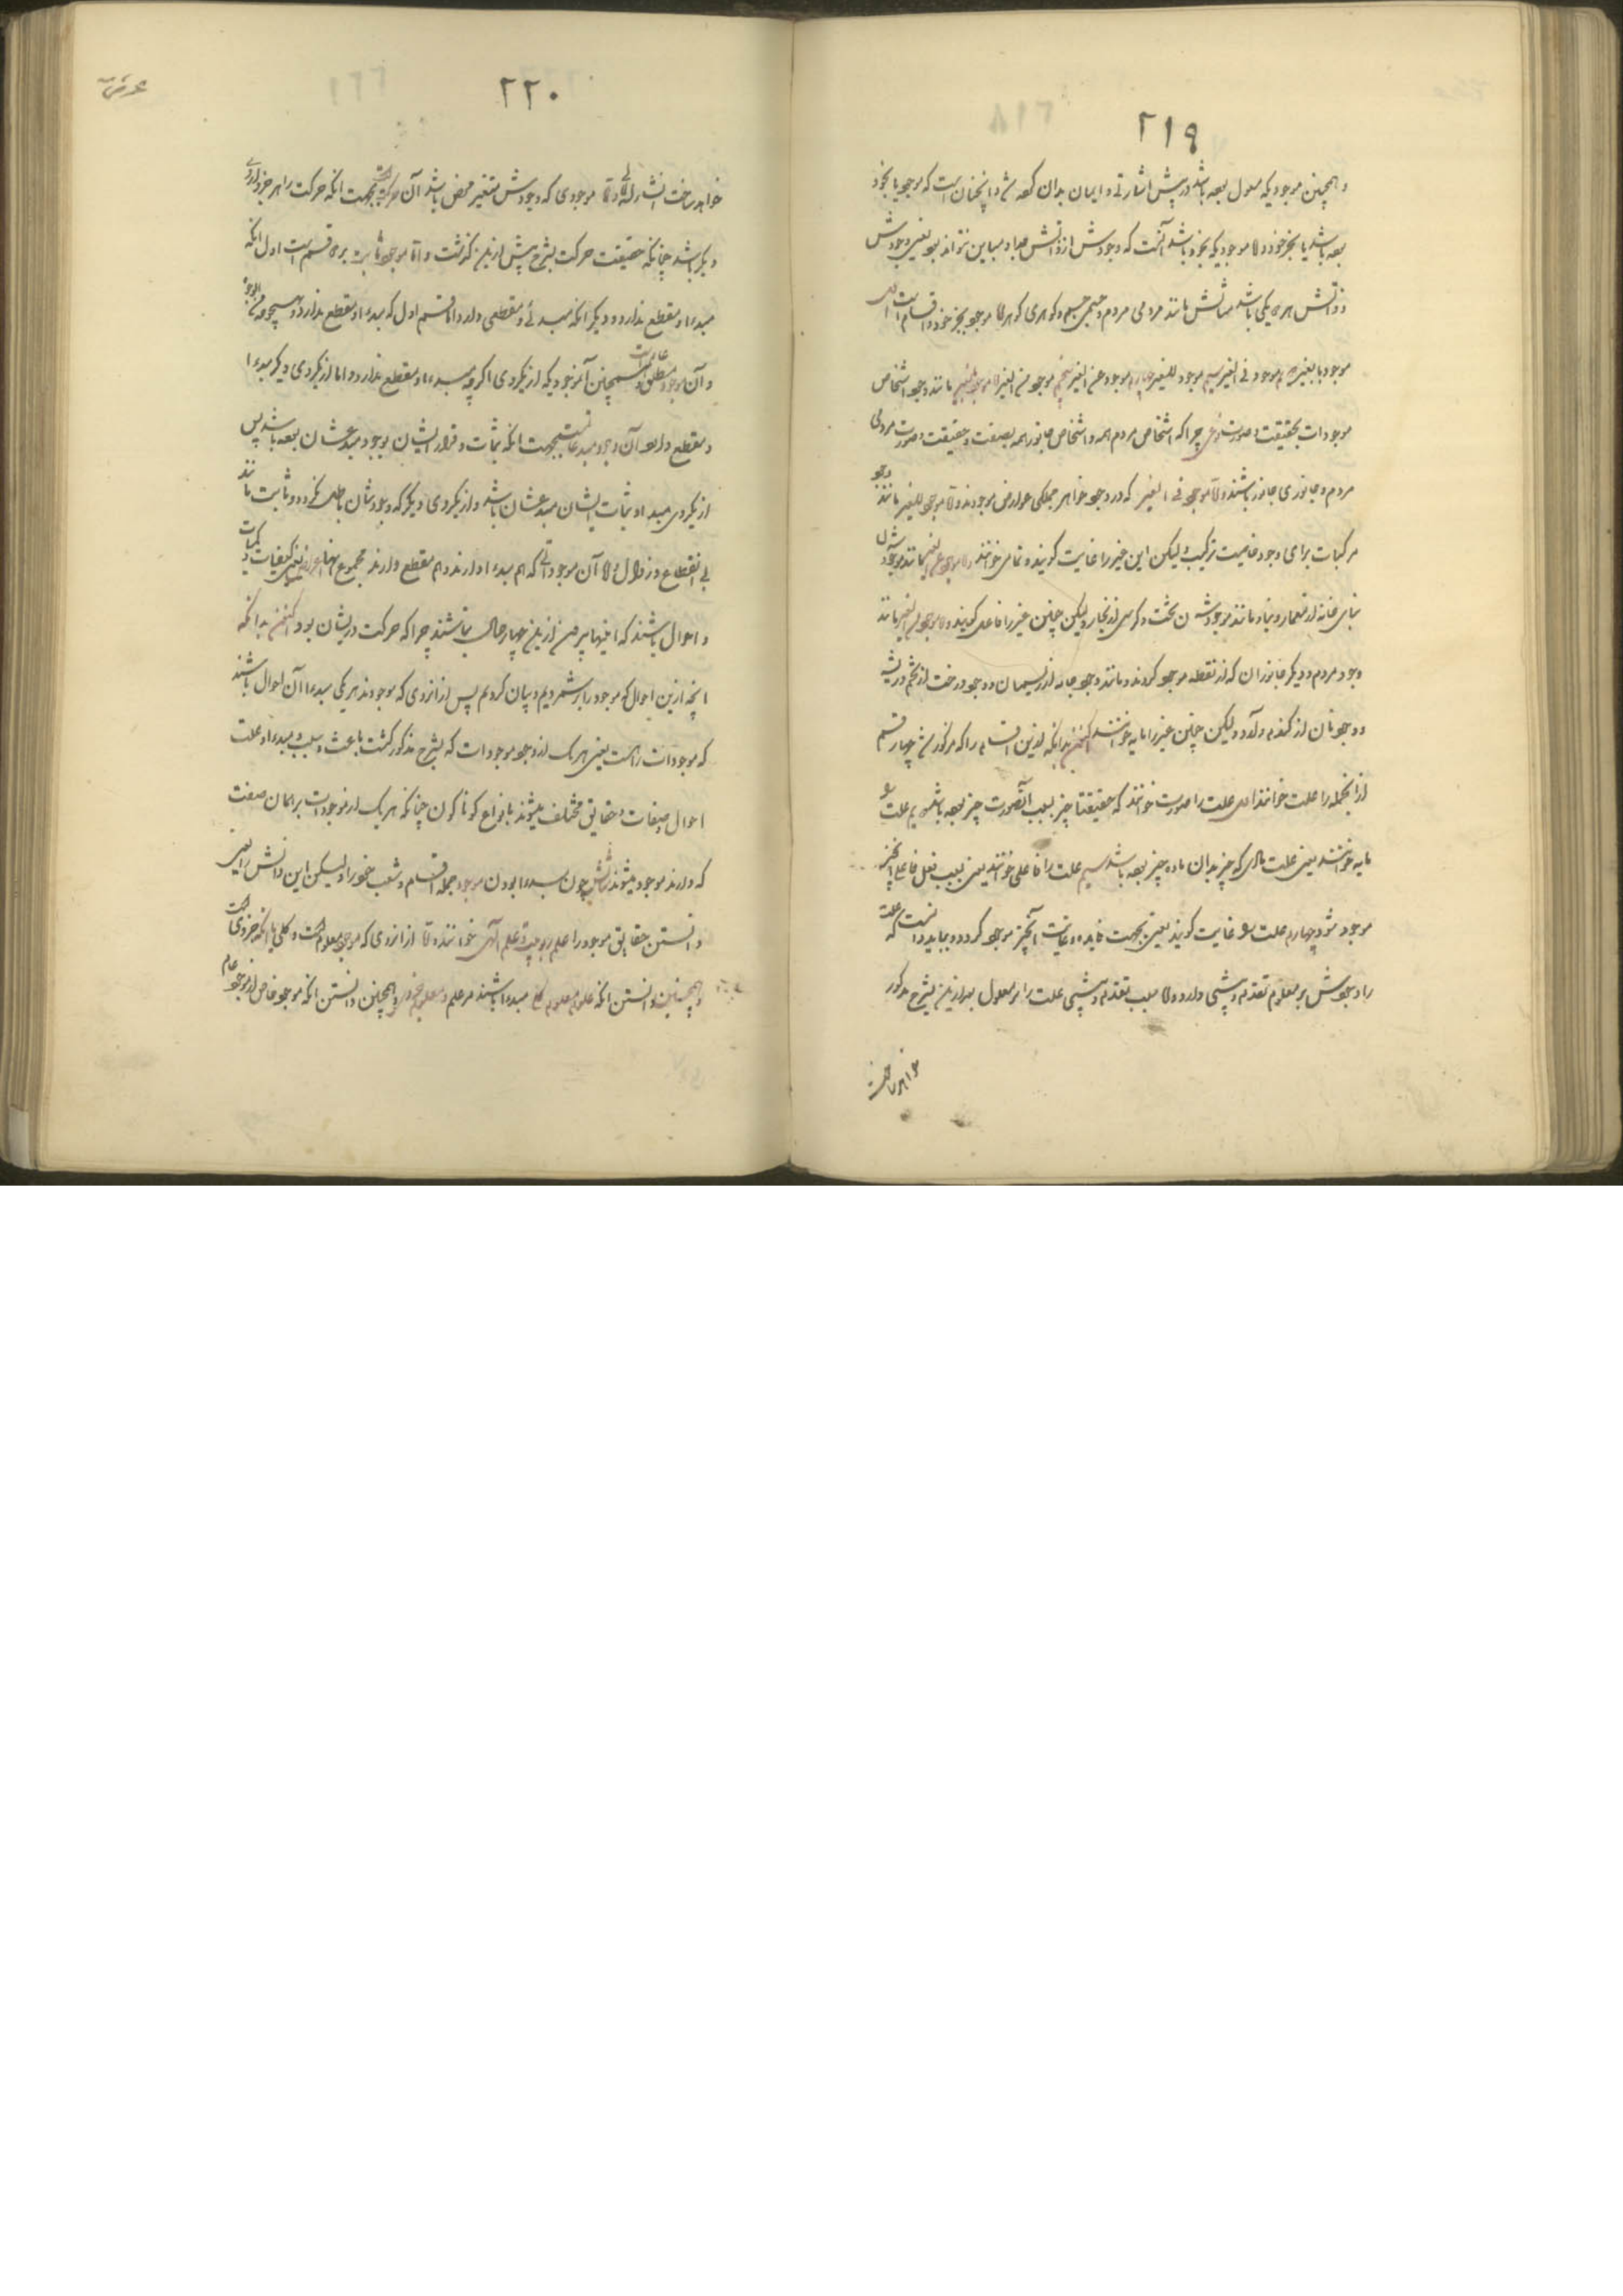 ۲۱۹
و همچنین موجودیکه معلول بود باشد در پیش اشارتی و ایمان بدان کرده شد و آنچنان است که موجود یا بخود
بود باشد یا بجز خود و اما موجودیکه بخود باشد آنست که وجودش از ذاتش جدا و مباین نتواند بود یعنی وجودش
و ذاتش هر دو یکی باشد مثالش مانند مردمی مردم و جسمی جسم و گوهری گوهر اما موجود بجز خود و اقسام است اول
موجود بالغیر دوم موجود فی الغیر سیم موجود للغیر چهارم موجود عن الغیر پنجم موجود من الغیر اما موجود بالغیر مانند وجود اشخاص
موجودات بحقیقت و صورت نوعی چرا که اشخاص مردم همه و اشخاص جانور همه بصفت و حقیقت و صورت مردمی
مردم و جانوری جانور باشند و اما موجود فی الغیر که در وجود جواهر جملگی عوارض موجودند و اما موجود للغیر مانند وجود
مرکبات برای وجود خاصیت ترکیب و لیکن این غیر را غایت گویند و تمامی خوانند و اما موجود عن الغیر مانند موجود شدن
بنای خانه از معمار و بنا و مانند موجود شدن تخت و کرسی از نجار و لیکن چنین غیر را فاعل گویند و اما موجود من الغیر مانند
وجود مردم و دیگر جانوران که از نطفه موجود گردند و مانند وجود جامه از ریسمان و وجود درخت از تخم و ریشه
و وجود نان از گندم و آرد و لیکن چنین غیر را مایه خوانند اکنون بدانکه ازین اقسام را که مذکور شد چهار قسم
از آنجمله را علت خوانند اول علت را صورت خوانند که حقیقتا چیز بسبب آنصورت چیز بود باشد دویم علت را
مایه خوانند یعنی علت مادی که چیز بدان ماده چیز بود باشد سیم علت را فاعلی خوانند یعنی بسبب فعل فاعل آنچیز
موجود شود چهارم علت را غایت گویند یعنی بجهت فایده و غایت آنچیز موجود گردد و بباید دانست که علت
را وجودش بر معلوم تقدم و پیشی دارد و اما سبب تقدم و پیشی علت را بر معلول بعد ازین بشرح مذکور
خواهد ساخت
۲۲۰
خواهد ساخت انشاءالله تعالی و اما موجودی که وجودش متغیر محض باشد آن حرکت است بجهت انکه حرکت را هر جزو از روی
دیگر باشد چنانکه حقیقت حرکت بشرح پیش ازین گذشت و اما موجود ثابت بر دو قسم است اول انکه
مبداء و مقطع ندارد و دیگر انکه مبدئی و مقطعی دارد اما قسم اول که مبداء و مقطع ندارد بهیچوجه من الوجوه
و آن موجود مطلق و عام است همچنین آنموجودیکه از یکروی اگر چه مبداء و مقطع ندارد و اما از یکروی دیگر مبداء
و مقطع دارد آن وجود مبدعاتست بجهت انکه ثبات و قرار ایشان بوجود مبدعشان بود باشد پس
از یکروی مبداء و ثبات ایشان مبدعشان باشد و از یکروی دیگر که وجودشان باطل نگردد و ثابت مانند
بی انقطاع و زوال و اما آن موجوداتی که هم مبداء دارند و هم مقطع دارند مجموع اعراض یعنی کیفیات و کمیات
و احوال باشند که اینها بیرون ازین چهار حال نباشند چرا که حرکت در ایشان بود اکنون بدانکه
انچه ازین احوال که موجود را بر شمردیم و بیان کردیم پس از انروی که موجودند هر یکی مبداء آن احوال باشند
که موجودات راست یعنی هر یک از وجود موجودات که بشرح مذکور گشت باعث و سبب و مبداء و علت
احوال و صفات و حقایق مختلف میشوند بانواع گوناگون چنانکه هر یک از موجودات بر همان صفت
که دارند موجود میشوند مثالش چون مبداء بودن موجود جمله اقسام و شعب خود را و لیکن این دانش را یعنی
دانستن حقایق موجود را علم ربوبیت و علم الهی خوانند و اما از انروی که موجود معلوم است و کلی یا انکه جزوی است
و همچنین دانستن انکه علوم و معلوم کلی مبداء باشند مر علم و معلوم جزوی و همچنین دانستن انکه موجود خاص از وجود عام